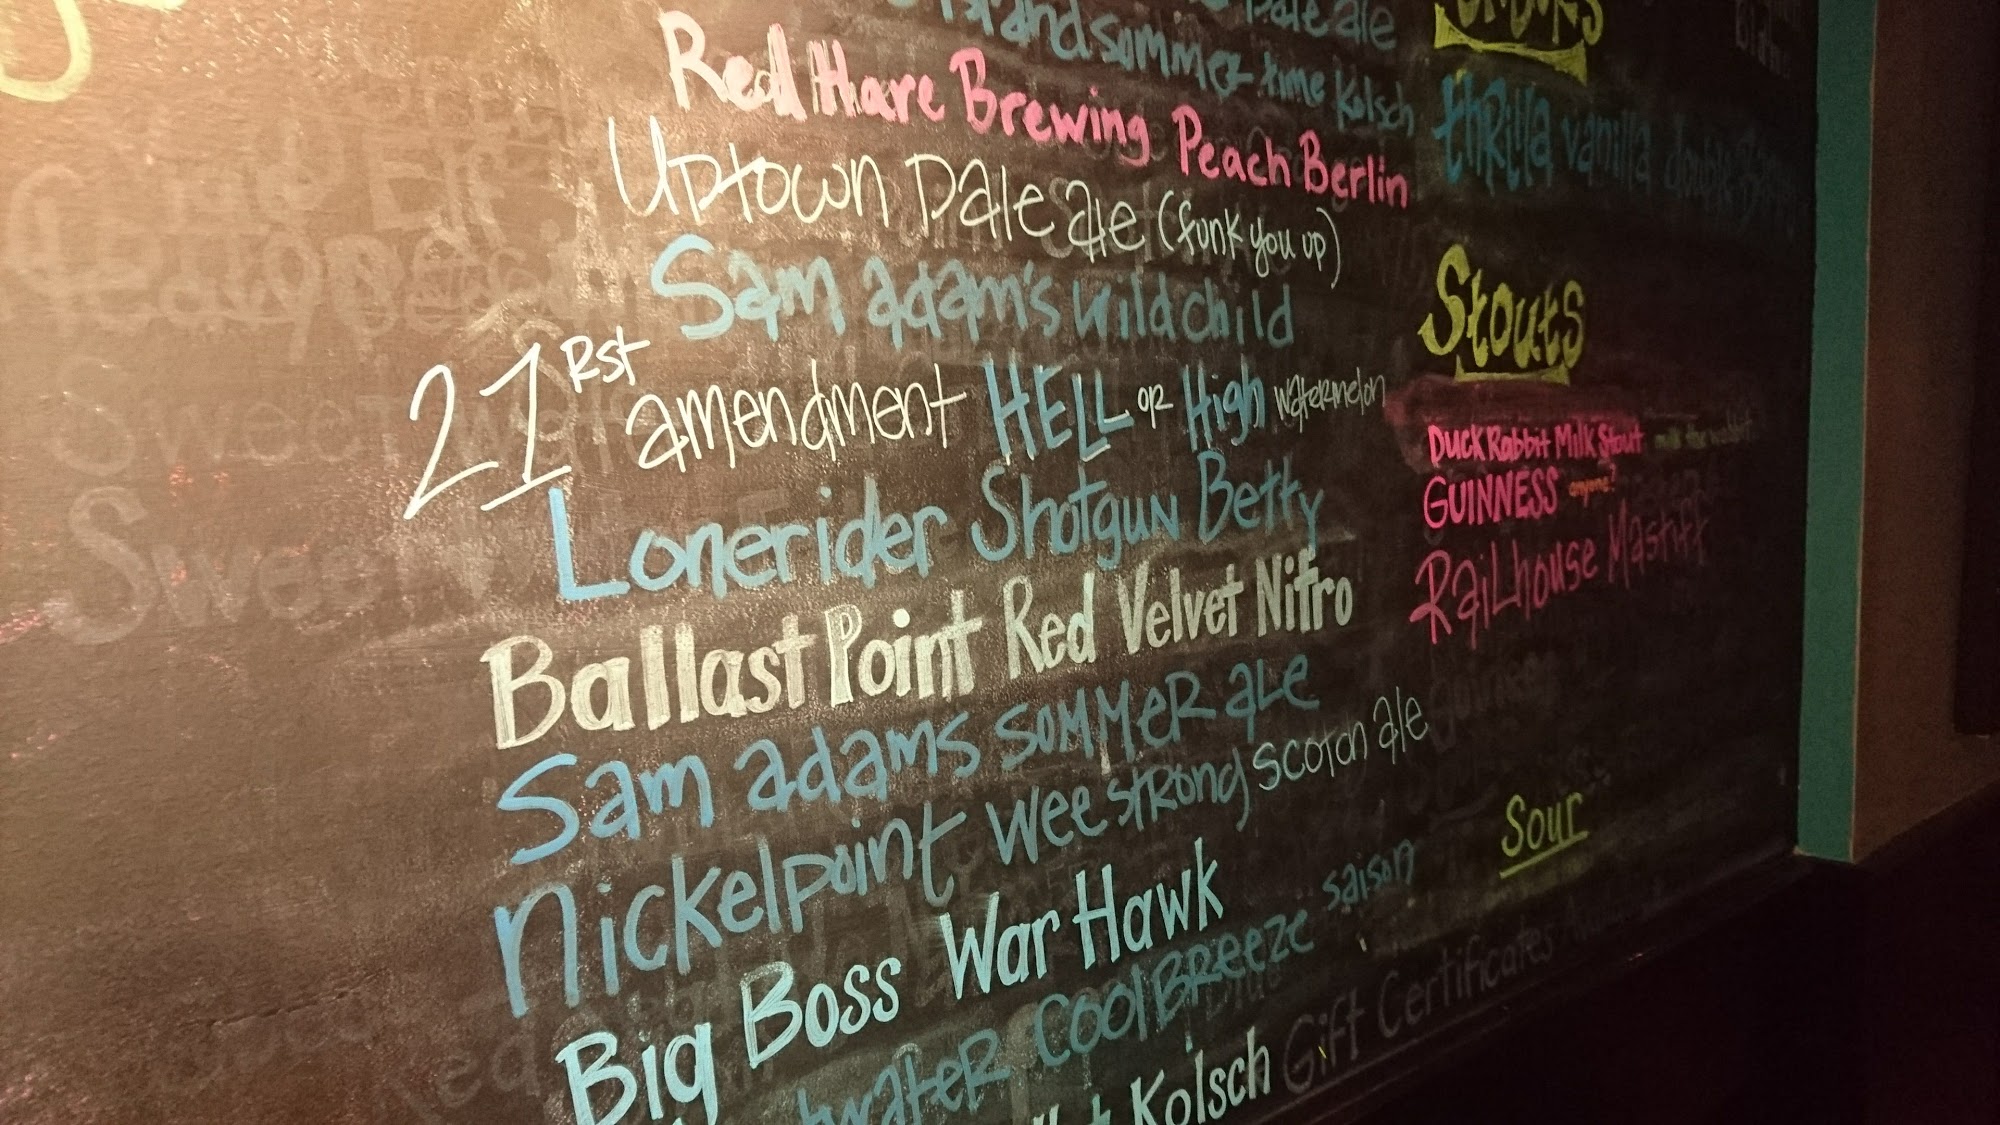 Pale ale
Island sommer time Kolsch
Red Hare Brewing Peach Berlin
Uptown Pale ale (funk you up)
Sam adam's wild child
21Rst amendment HELL or High watermelon
Lonerider Shotgun Betty
Ballast Point Red Velvet Nitro
Sam adams sommer ale
Nickelpoint wee strong scotch ale
Big Boss War Hawk
water Cool Breeze saison
Kolsch
Gift Certificates
thrilla vanilla double
Stouts
Duck Rabbit Milk Stout milk the wabbit
GUINNESS anyone?
Railhouse Mastiff
guinness
Sour